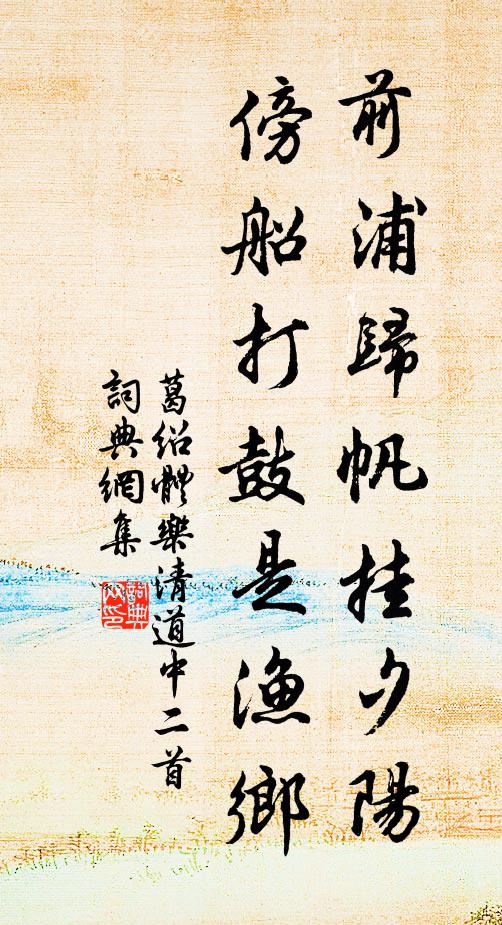 前浦歸帆挂夕陽
傍船打鼓是漁鄉
葛紹體樂清道中二首
詞典網集